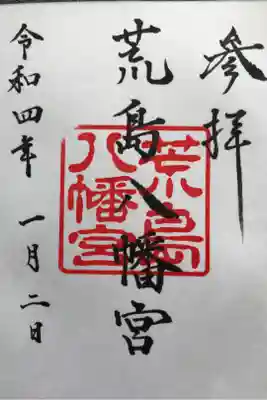 參拝
荒島八幡宮
荒島
八幡宮
令和四年 一月二日